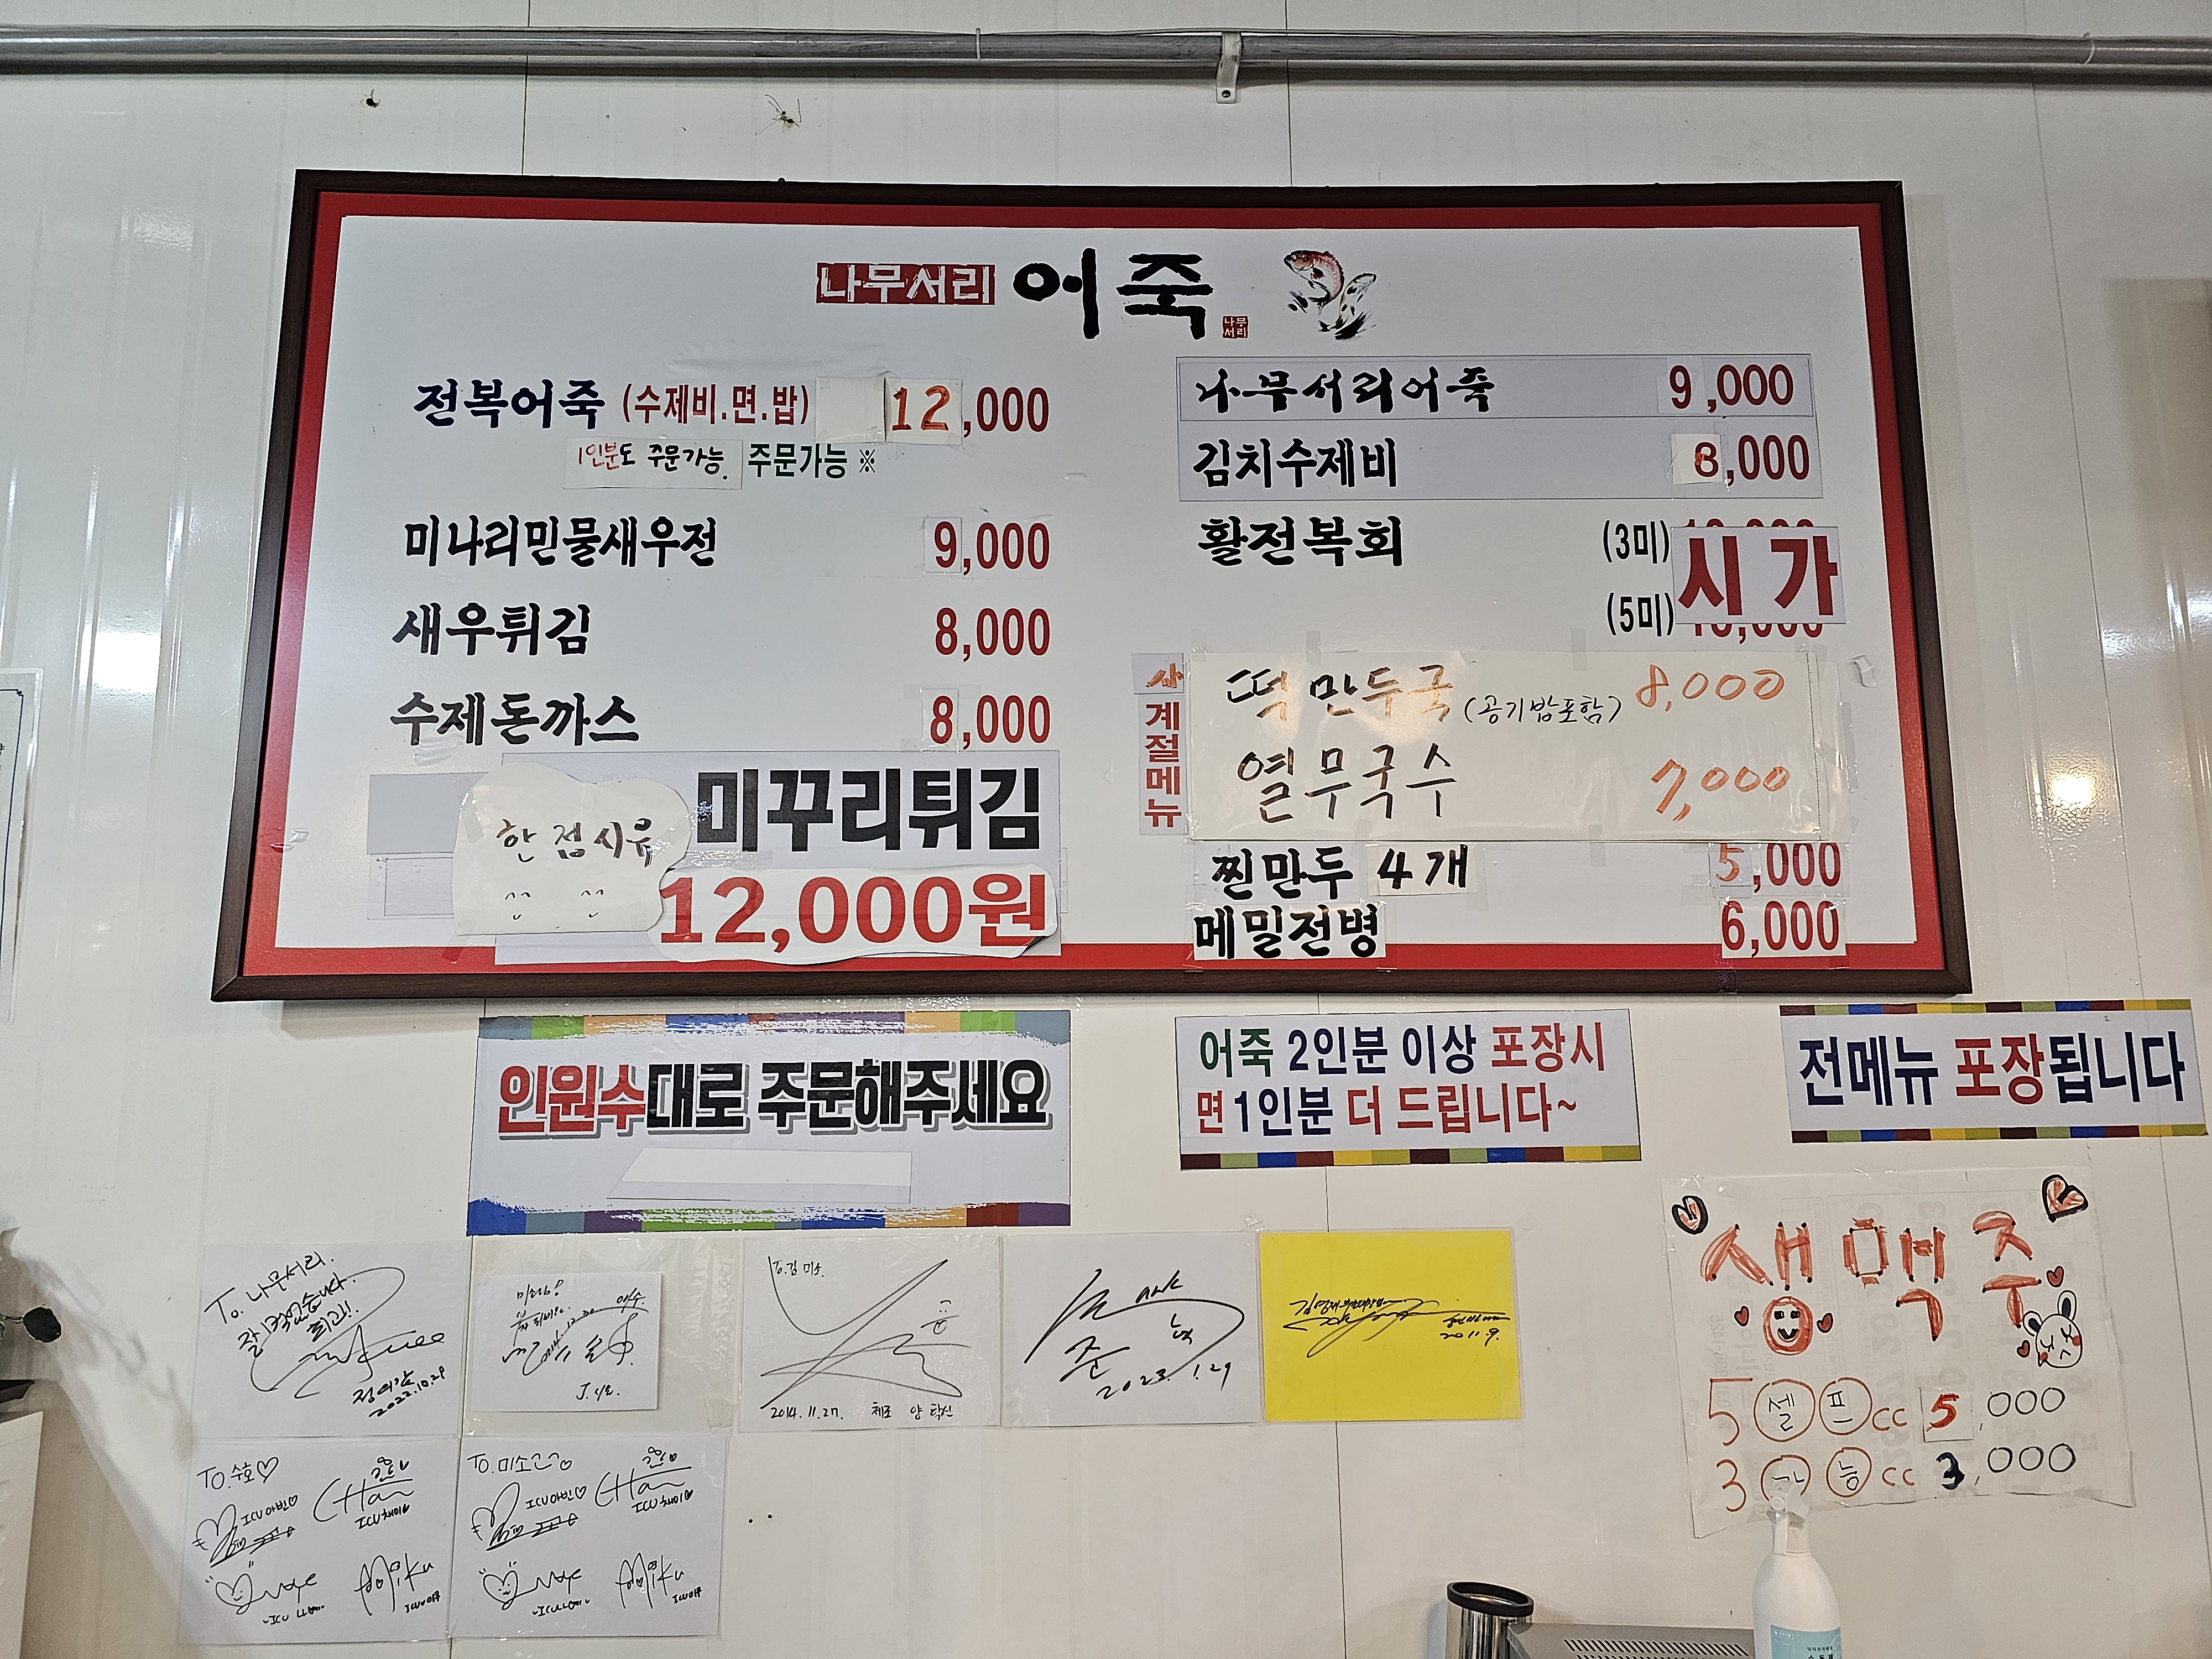 나무서리 어죽
나무서리
전복어죽 (수제비.면.밥) 12,000
1인분도 주문가능. 주문가능 ※
미나리민물새우전 9,000
새우튀김 8,000
수제돈까스 8,000
한 점 시유
미꾸리튀김
12,000원
나무서리어죽 9,000
김치수제비 8,000
활전복회 (3미)
(5미)
시가
사계절메뉴
떡만두국 (공기밥포함) 8,000
열무국수 7,000
찐만두 4개 5,000
메밀전병 6,000
인원수대로 주문해주세요
어죽 2인분 이상 포장시
면 1인분 더 드립니다~
전메뉴 포장됩니다
생맥주
5 셀 프 cc 5,000
3 가 능 cc 3,000
To. 나무서리.
잘 먹었습니다.
최고!!
2022.10.29
To. 김미소.
2014. 11. 27. 체조 양학선
2023. 1. 29
2011. 9.
TO. 수호♡
Han
ICU 아빈♡
ICU 채이
Miku
TO. 미소
Han
ICU 아빈♡
ICU 채이
Miku